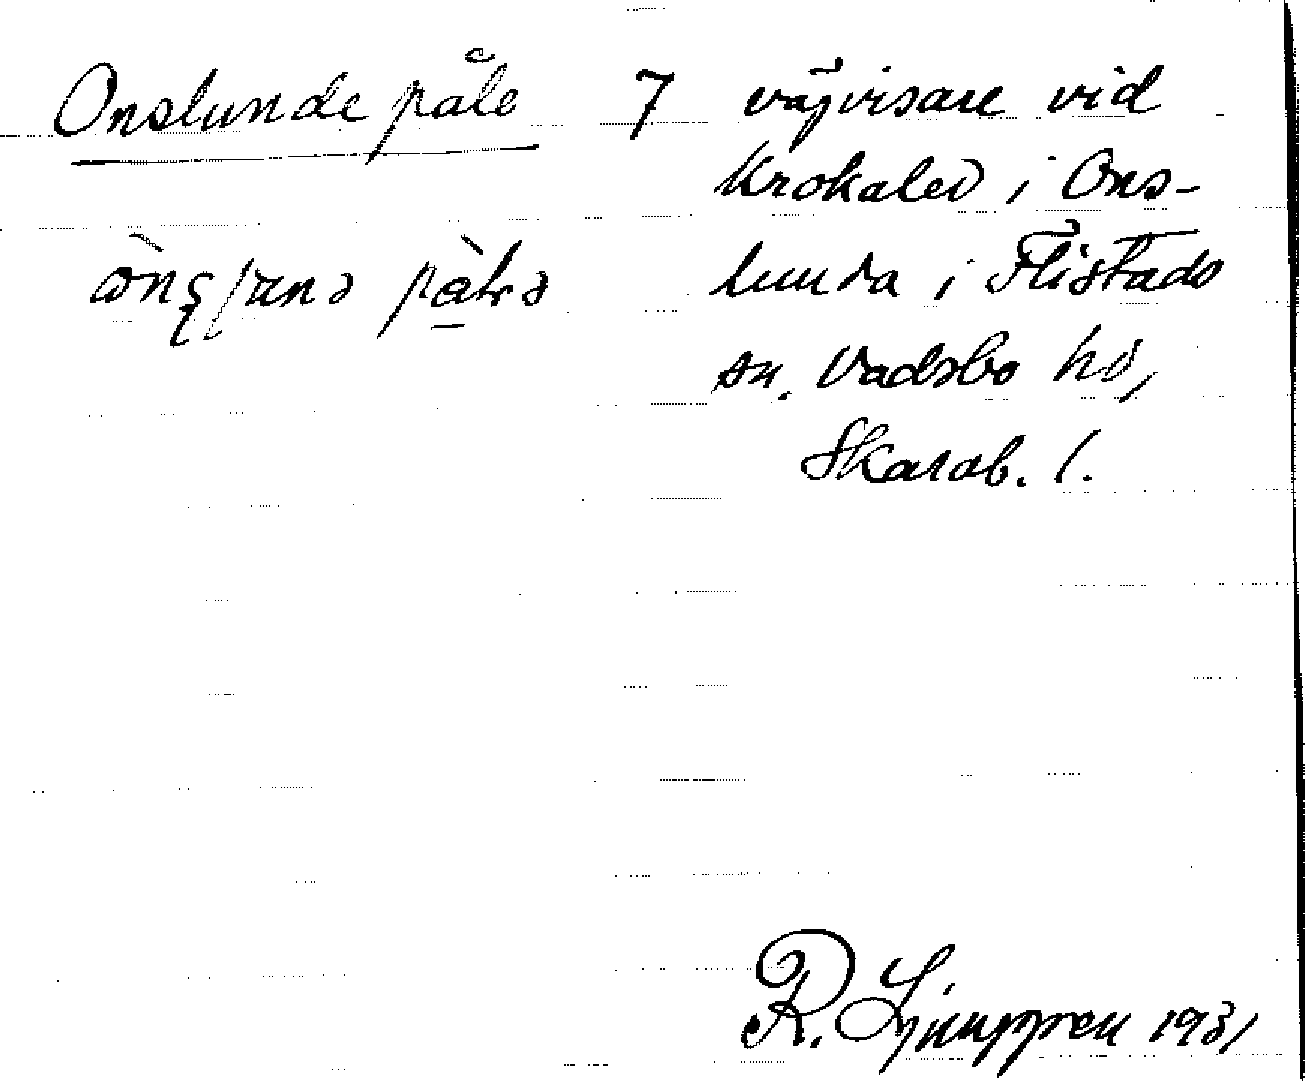 Onslunde påle 7 väjvisare vid
Krokaled i Ons-
lunda i Flistads
sn. Vadsbo hd,
Skarab. l.
R. Ljunggren 1931